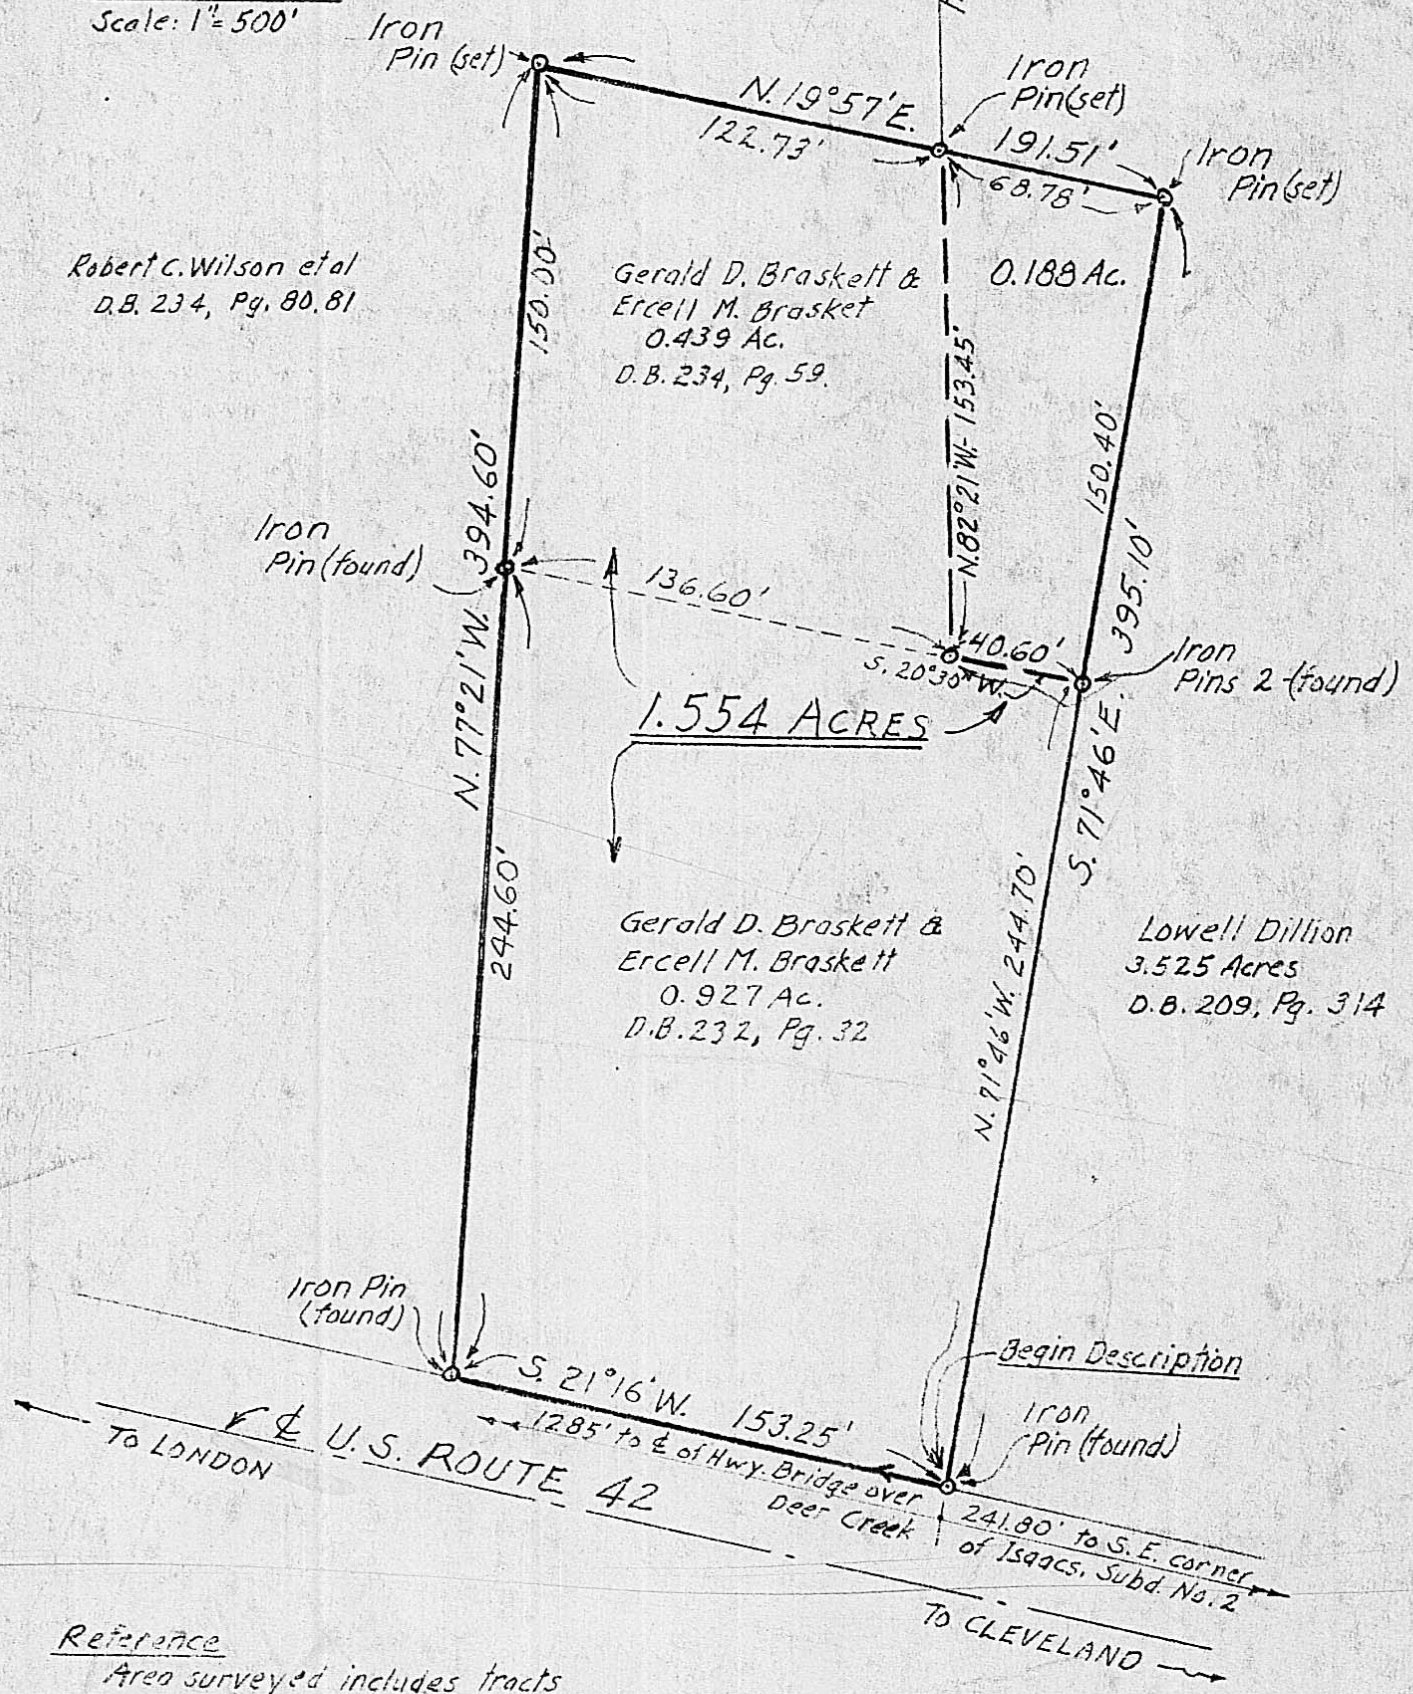 Scale: 1"= 500'
Iron
Pin (set)
N. 19°57'E.
122.73'
Iron
Pin (set)
191.51'
68.78'
Iron
Pin (set)
Robert C. Wilson et al
D.B. 234, Pg. 80,81
150.00'
Gerald D. Braskett &
Ercell M. Brasket
0.439 Ac.
D.B. 234, Pg. 59.
0.188 Ac.
N.82°21'W- 153.45'
150.40'
395.10'
S. 71°46'E.
394.60'
N. 77°21'W.
Iron
Pin (found)
136.60'
40.60'
S. 20°30" W.
Iron
Pins 2 (found)
1.554 ACRES
244.60'
Gerald D. Braskett &
Ercell M. Braskett
0.927 Ac.
D.B. 232, Pg. 32
N. 71°46'W. 244.70'
Lowell Dillion
3.525 Acres
D.B. 209, Pg. 314
Iron Pin
(found)
S. 21°16' W. 153.25'
1285' to ℄ of Hwy. Bridge over
Deer Creek
Begin Description
Iron
Pin (found)
241.80' to S.E. corner
of Isaacs, Subd. No. 2
℄ U.S. ROUTE 42
TO LONDON
TO CLEVELAND
Reference
Area surveyed includes tracts